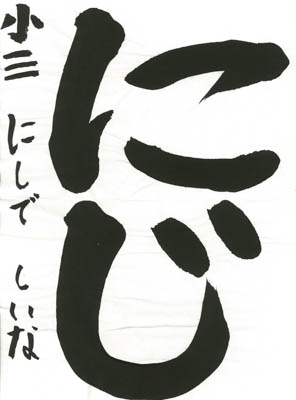 にじ
小三 にしで しいな